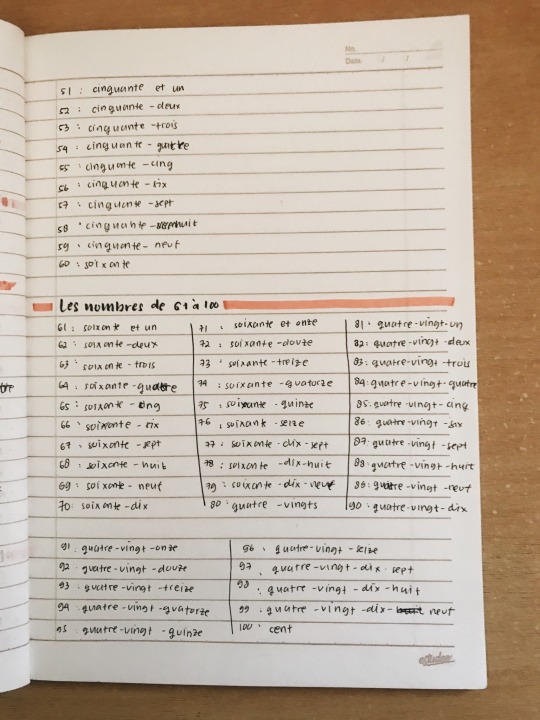 No.
Date
51 : cinquante et un
52 : cinquante-deux
53 : cinquante-trois
54 : cinquante-quatre
55 : cinquante-cinq
56 : cinquante-six
57 : cinquante-sept
58 : cinquante-huit
59 : cinquante-neuf
60 : soixante
Les nombres de 61 à 100
61 : soixante et un
62 : soixante-deux
63 : soixante-trois
64 : soixante-quatre
65 : soixante-cinq
66 : soixante-six
67 : soixante-sept
68 : soixante-huit
69 : soixante-neuf
70 : soixante-dix
71 : soixante et onze
72 : soixante-douze
73 : soixante-treize
74 : soixante-quatorze
75 : soixante-quinze
76 : soixante-seize
77 : soixante-dix-sept
78 : soixante-dix-huit
79 : soixante-dix-neuf
80 : quatre-vingts
81 : quatre-vingt-un
82 : quatre-vingt-deux
83 : quatre-vingt-trois
84 : quatre-vingt-quatre
85 : quatre-vingt-cinq
86 : quatre-vingt-six
87 : quatre-vingt-sept
88 : quatre-vingt-huit
86 : quatre-vingt-neuf
90 : quatre-vingt-dix
91 : quatre-vingt-onze
92 : quatre-vingt-douze
93 : quatre-vingt-treize
94 : quatre-vingt-quatorze
95 : quatre-vingt-quinze
96 : quatre-vingt-seize
97 : quatre-vingt-dix-sept
98 : quatre-vingt-dix-huit
99 : quatre-vingt-dix-neuf
100 : cent